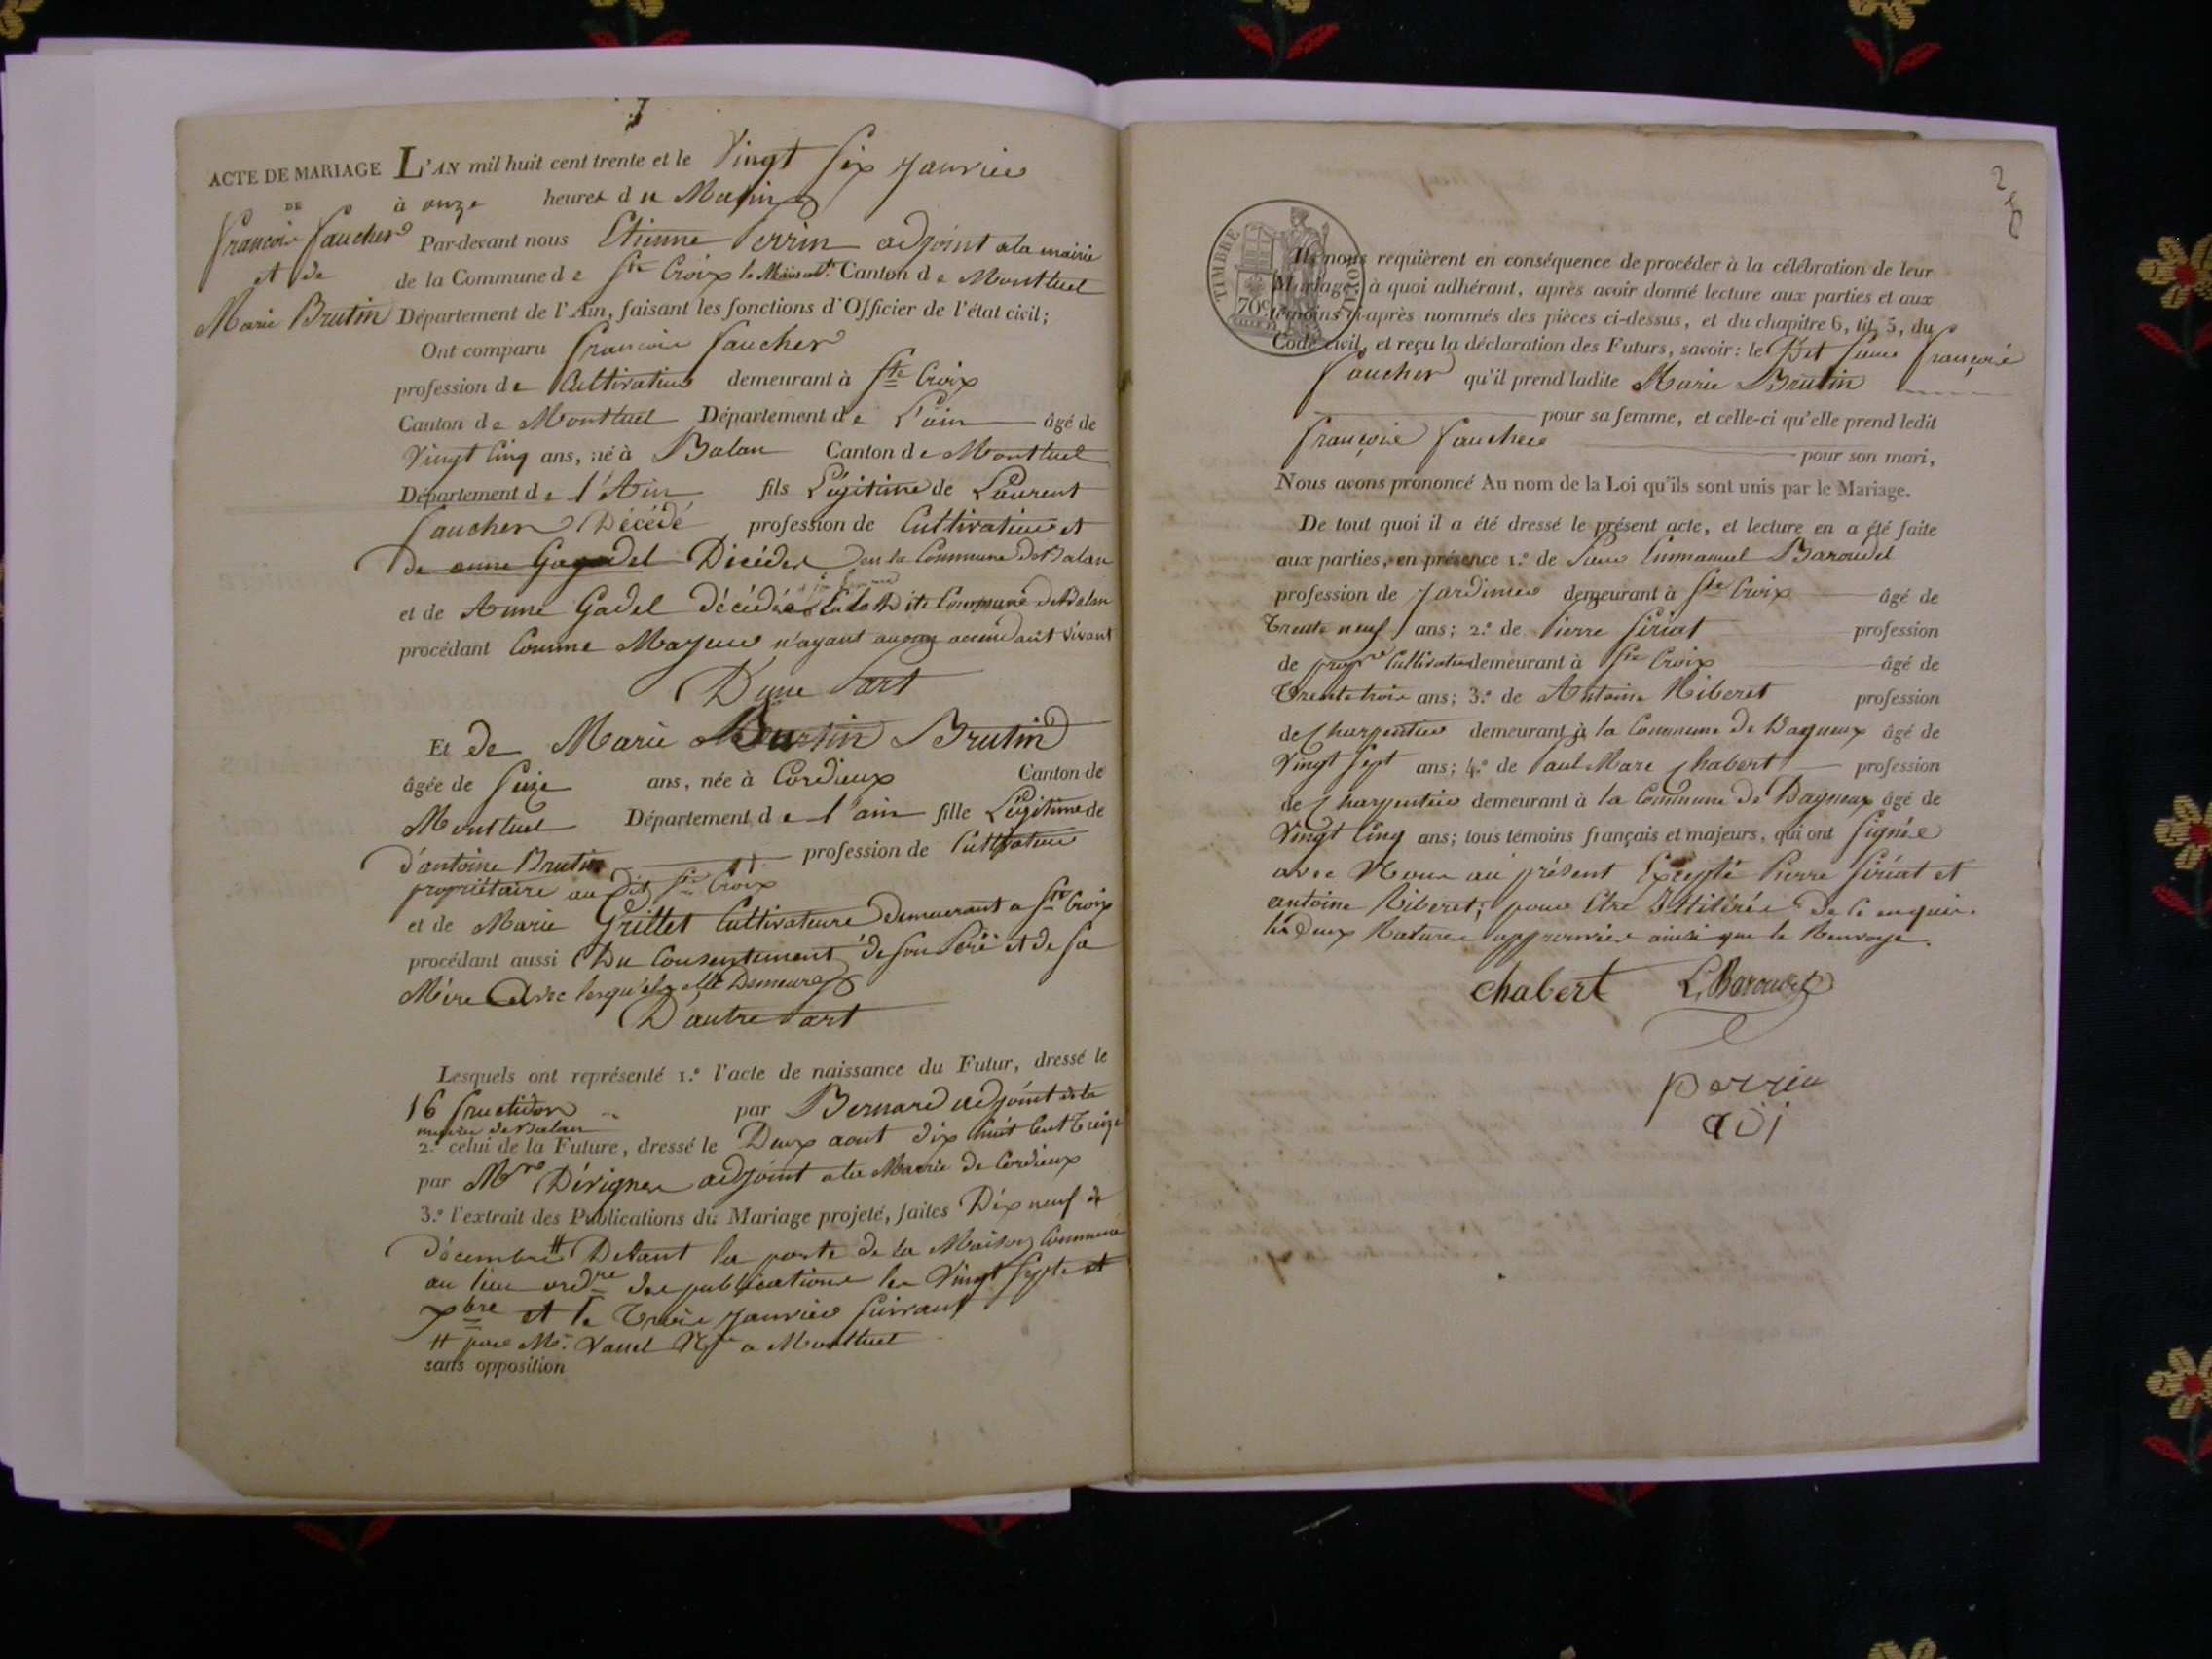 ACTE DE MARIAGE
DE
François Faucher
et de
Marie Brutin
L'AN mil huit cent trente et le Vingt Six Janvier
à onze heures du Matin
Par-devant nous Etienne Perrin adjoint a la mairie
de la Commune de Ste Croix Canton de Montluel
Département de l'Ain, faisant les fonctions d'Officier de l'état civil;
Ont comparu François Faucher
profession de Cultivateur demeurant à Ste Croix
Canton de Montluel Département de L'ain âgé de
Vingt Cinq ans, né à Balan Canton de Montluel
Département de l'Ain fils Légitime de Laurent
Faucher Décédé profession de Cultivateur et
de anne Gagadel Décédés en la Commune de Balan
et de Anne Gadel décédée en la Dite Commune de Balan
procédant Comme Majeur n'ayant aucun accendant vivant
D'une Part
Et de Marie Burtin Brutin
âgée de Seize ans, née à Cordieux Canton de
Montluel Département de l'ain fille Légitime de
d'antoine Brutin profession de Cultivateur
propriétaire au dit Ste Croix
et de Marie Grillet Cultivateurs Demeurant a Ste Croix
procédant aussi Du Consentement de son Père et de Sa
Mère Avec lesquels elle Demeure
D'autre Part
Lesquels ont représenté 1.º l'acte de naissance du Futur, dressé le
16 fructidor par Bernard adjoint de la
mairie de Balan
2.º celui de la Future, dressé le Deux aout dix huit Cent Treize
par Mr Dérignes adjoint a la Mairie de Cordieux
3.º l'extrait des Publications du Mariage projeté, faites Dix neuf
décembre # Devant la porte de la Maison Commune
au lieu ordre des publications les Vingt Sept et
xbre et le Trois Janvier Suivant
# par Me. Vassel Nre a Montluel
sans opposition
2
TIMBRE ROYAL
70c
Ils nous requièrent en conséquence de procéder à la célébration de leur
Mariage, à quoi adhérant, après avoir donné lecture aux parties et aux
témoins ci-après nommés des pièces ci-dessus, et du chapitre 6, tit. 5, du
Code civil, et reçu la déclaration des Futurs, savoir: le Dit Sieur François
Faucher qu'il prend ladite Marie Brutin
pour sa femme, et celle-ci qu'elle prend ledit
François Faucher
pour son mari,
Nous avons prononcé Au nom de la Loi qu'ils sont unis par le Mariage.
De tout quoi il a été dressé le présent acte, et lecture en a été faite
aux parties, en présence 1.º de Sieur Emmanuel Baroudel
profession de Jardinier demeurant à Ste Croix âgé de
Trente neuf ans; 2.º de Pierre Siriat profession
de propre Cultivateur demeurant à Ste Croix âgé de
Trente trois ans; 3.º de Antoine Riberet profession
de Charpentier demeurant à la Commune de Dagneux âgé de
Vingt Sept ans; 4.º de Paul Marc Chabert profession
de Charpentier demeurant à la Commune de Dagneux âgé de
Vingt Cinq ans; tous témoins français et majeurs, qui ont Signés
avec Nous au présent Excepté Pierre Siriat et
antoine Riberet; pour Etre Illitérés de Ce enquis.
les Deux Ratures approuvées ainsi que le Renvoye.
chabert
perrin
adj